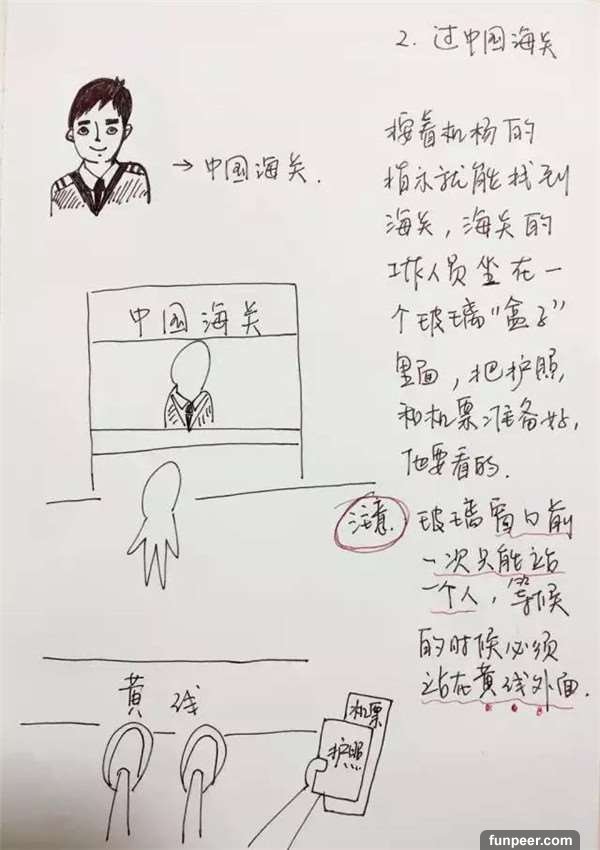 2. 过中国海关
→中国海关.
按着机杨的
指示就能找到
海关,海关的
工作人员坐在一
个玻璃“盒子”
里面,把护照,
和机票准备好,
他要看的.
中国海关
注意.
玻璃窗口前
一次只能站
一个人,等候
的时候必须
站在黄线外面.
黄线
机票
护照
funpeer.com